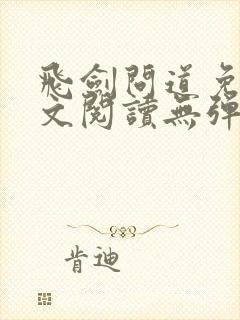 飛劍問道免
文閱讀無彈
肯迪